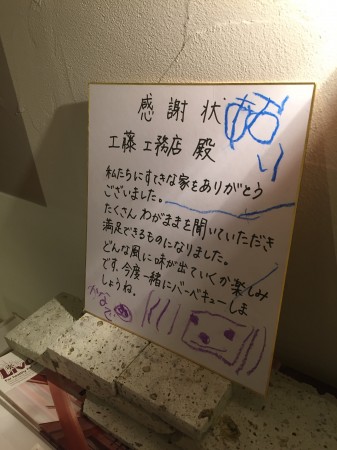 感謝状
工藤工務店 殿
私たちにすてきな家をありがとう
ございました。
たくさんわがままを聞いていただき
満足できるものになりました。
どんな風に味が出ていくか楽しみ
です。今度一緒にバーベキューしま
しょうね。